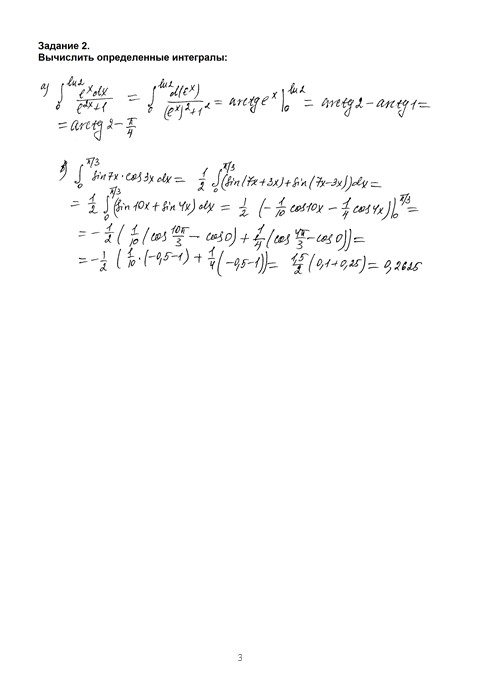 Задание 2.
Вычислить определенные интегралы:
а) ∫₀^{ln2} e^x dx / (e^{2x}+1) = ∫₀^{ln2} d(e^x) / ((e^x)²+1²) = arctg e^x |₀^{ln2} = arctg 2 − arctg 1 =
= arctg 2 − π/4
в) ∫₀^{π/3} sin7x · cos3x dx = 1/2 ∫₀^{π/3} (sin(7x+3x) + sin(7x−3x))dx =
= 1/2 ∫₀^{π/3} (sin10x + sin4x) dx = 1/2 (−1/10 cos10x − 1/4 cos4x)|₀^{π/3} =
= −1/2 (1/10 (cos 10π/3 − cos0) + 1/4 (cos 4π/3 − cos0)) =
= −1/2 (1/10 · (−0,5−1) + 1/4 (−0,5−1)) = 1,5/2 (0,1+0,25) = 0,2625
3